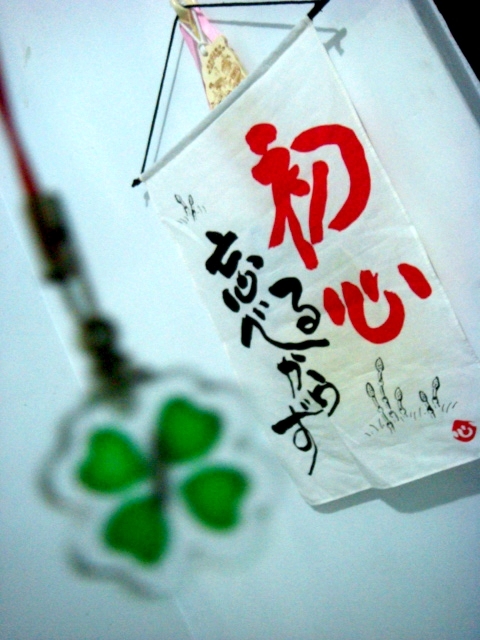 初心
忘るべ
からず